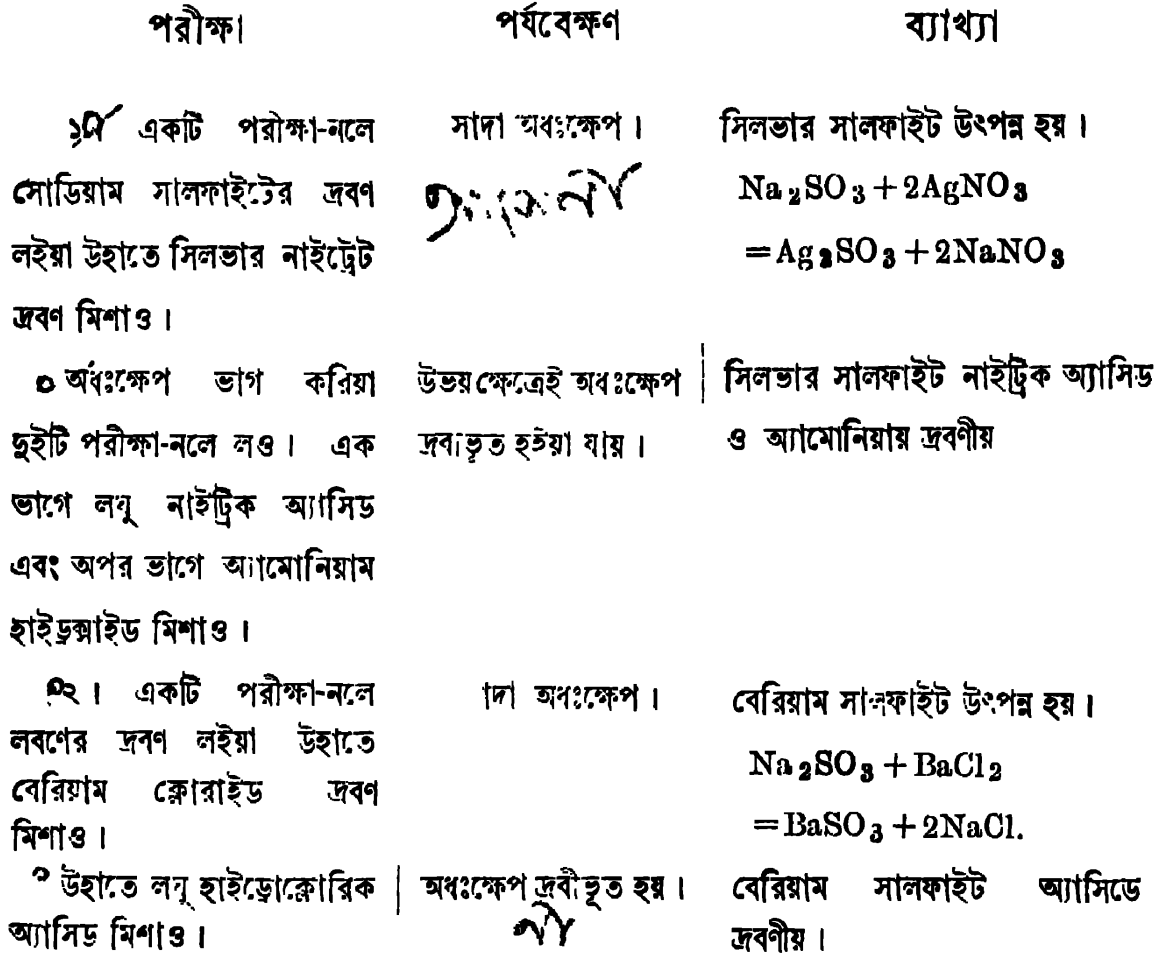 পরীক্ষা পর্যবেক্ষণ ব্যাখ্যা
একটি পরীক্ষা-নলে
সোডিয়াম সালফাইটের দ্রবণ
লইয়া উহাতে সিলভার নাইট্রেট
দ্রবণ মিশাও।
সাদা অধঃক্ষেপ।
সিলভার সালফাইট উৎপন্ন হয়।
Na₂SO₃ + 2AgNO₃
= Ag₂SO₃ + 2NaNO₃
অধঃক্ষেপ ভাগ করিয়া
দুইটি পরীক্ষা-নলে লও। এক
ভাগে লঘু নাইট্রিক অ্যাসিড
এবং অপর ভাগে অ্যামোনিয়াম
হাইড্রক্সাইড মিশাও।
উভয় ক্ষেত্রেই অধঃক্ষেপ
দ্রবীভূত হইয়া যায়।
সিলভার সালফাইট নাইট্রিক অ্যাসিড
ও অ্যামোনিয়ায় দ্রবণীয়
২। একটি পরীক্ষা-নলে
লবণের দ্রবণ লইয়া উহাতে
বেরিয়াম ক্লোরাইড দ্রবণ
মিশাও।
অধঃক্ষেপ।
বেরিয়াম সালফাইট উৎপন্ন হয়।
Na₂SO₃ + BaCl₂
= BaSO₃ + 2NaCl.
উহাতে লঘু হাইড্রোক্লোরিক
অ্যাসিড মিশাও।
অধঃক্ষেপ দ্রবীভূত হয়।
বেরিয়াম সালফাইট অ্যাসিডে
দ্রবণীয়।